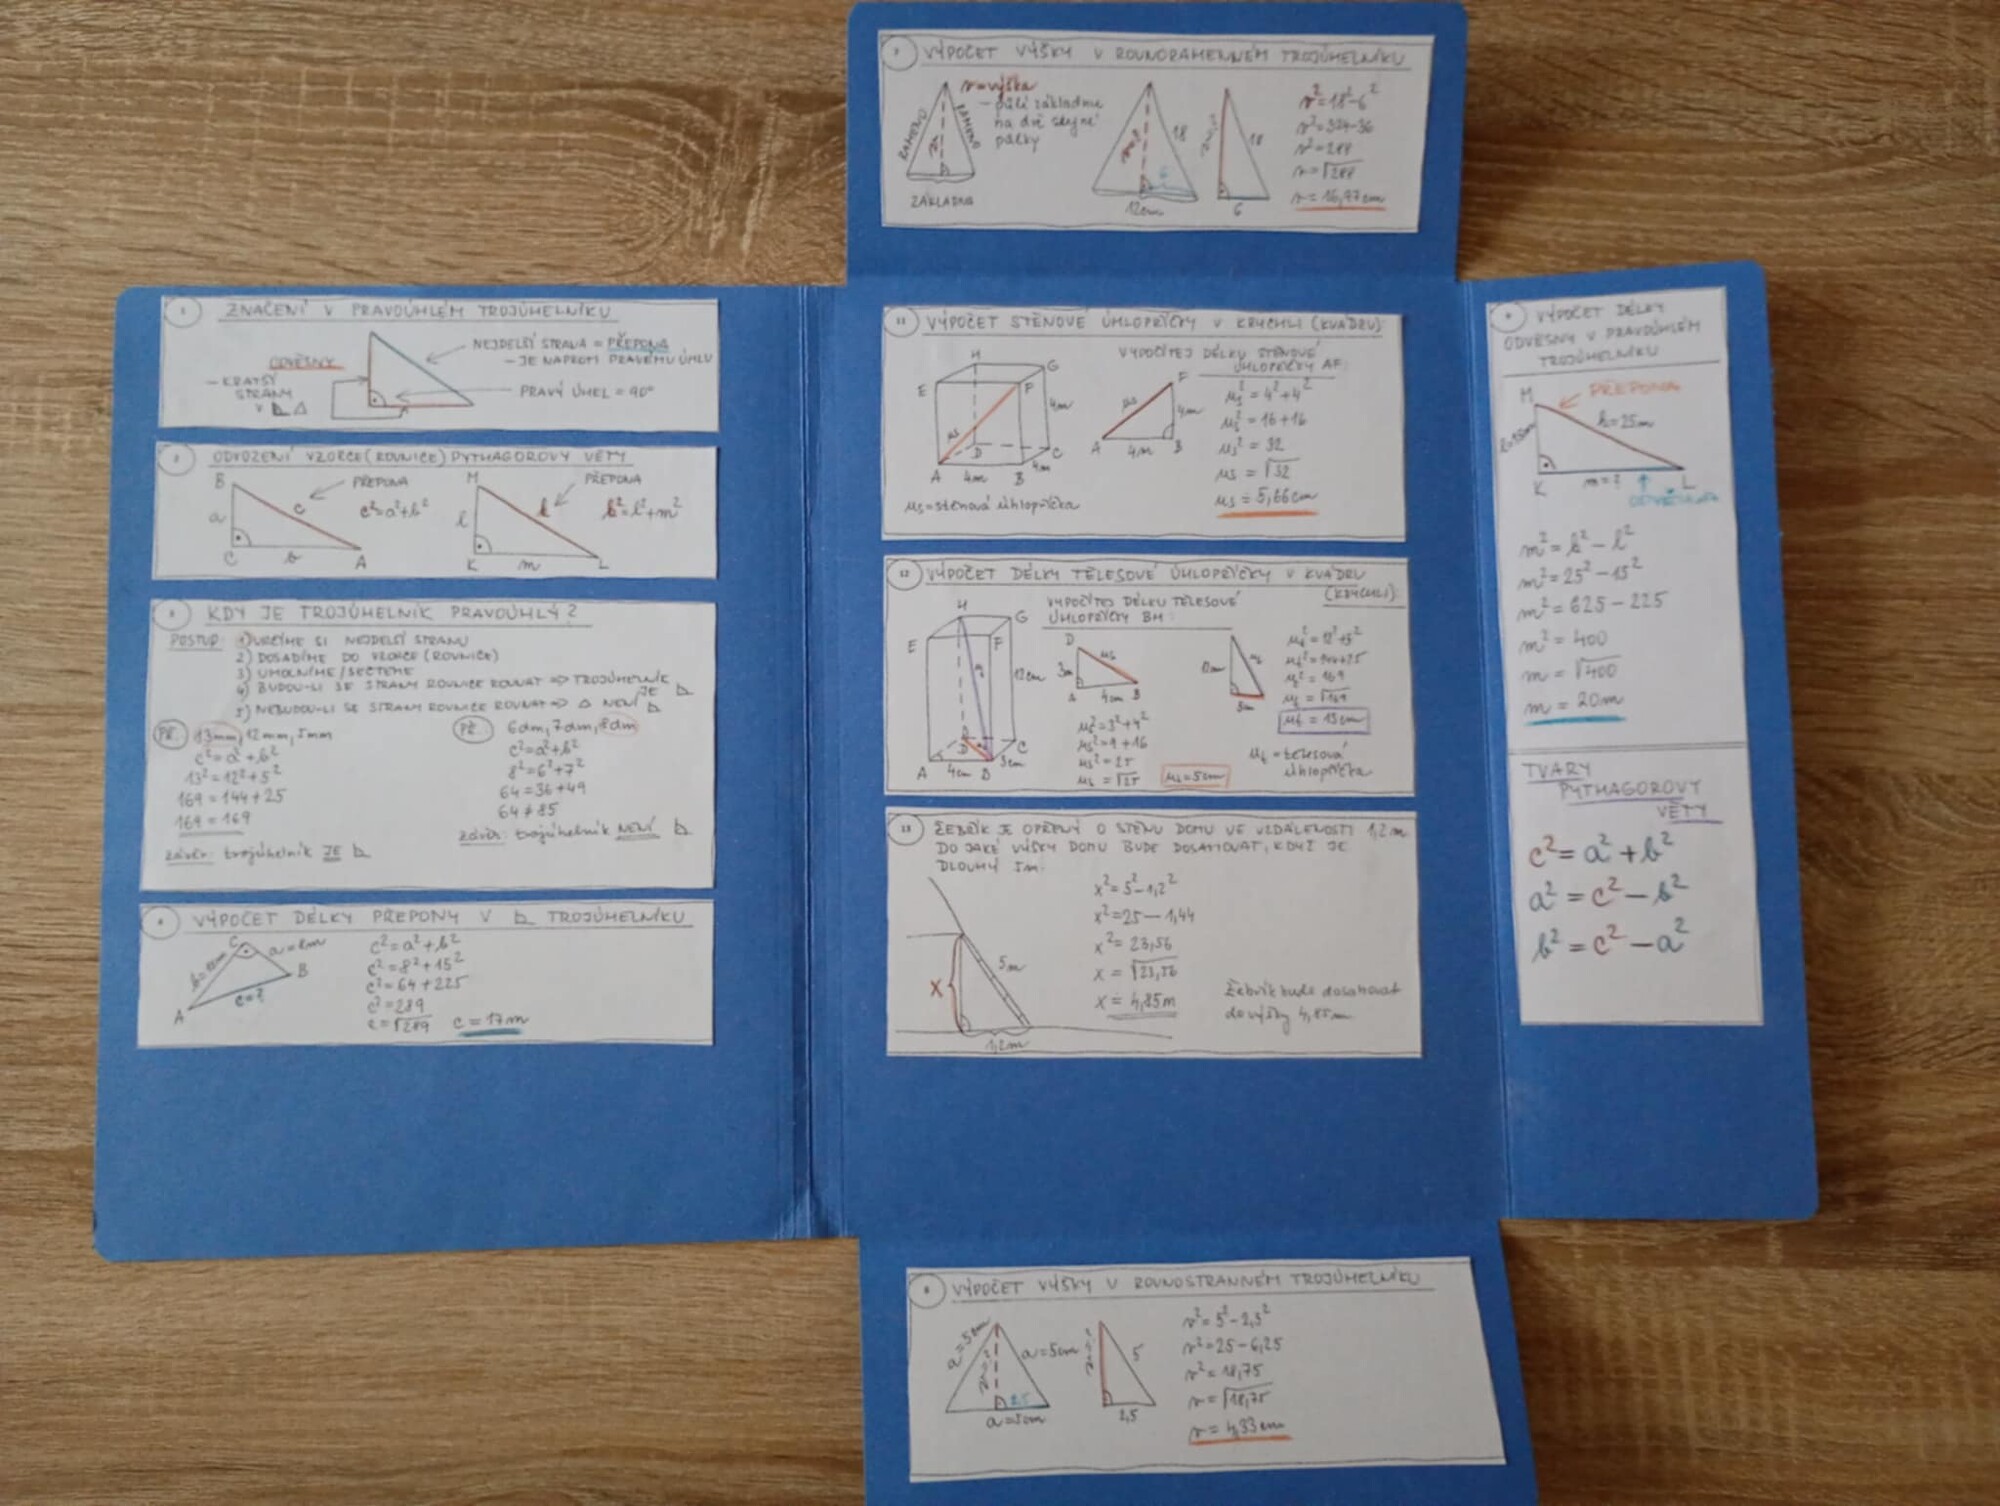 7 VÝPOČET VÝŠKY V ROVNORAMENNÉM TROJÚHELNÍKU
v=výška
- půlí základnu
na dvě stejné
půlky
RAMENO
RAMENO
ZÁKLADNA
18
6
12cm
18
6
v²=18²-6²
v²=324-36
v²=288
v=√288
v=16,97cm
1 ZNAČENÍ V PRAVOÚHLÉM TROJÚHELNÍKU
NEJDELŠÍ STRANA = PŘEPONA
- JE NAPROTI PRAVÉMU ÚHLU
ODVĚSNY
- KRATŠÍ
STRANY
V
PRAVÝ ÚHEL = 90°
2 ODVOZENÍ VZORCE (ROVNICE) PYTHAGOROVY VĚTY
B
a
c
PŘEPONA
c²=a²+b²
C
b
A
M
l
k
PŘEPONA
k²=l²+m²
K
m
L
3 KDY JE TROJÚHELNÍK PRAVOÚHLÝ?
POSTUP: 1) URČÍME SI NEJDELŠÍ STRANU
2) DOSADÍME DO VZORCE (ROVNICE)
3) UMOCNÍME/SEČTEME
4) BUDOU-LI SE STRANY ROVNICE ROVNAT => TROJÚHELNÍK
JE
5) NEBUDOU-LI SE STRANY ROVNICE ROVNAT => △ NENÍ
PŘ: 13mm, 12mm, 5mm
c²=a²+b²
13²=12²+5²
169=144+25
169=169
závěr: trojúhelník JE
PŘ: 6dm, 7dm, 8dm
c²=a²+b²
8²=6²+7²
64=36+49
64≠85
závěr: trojúhelník NENÍ
VÝPOČET DÉLKY PŘEPONY V TROJÚHELNÍKU
C
a=8m
B
c=?
A
c²=a²+b²
c²=8²+15²
c²=64+225
c²=289
c=√289 c=17m
11 VÝPOČET STĚNOVÉ ÚHLOPŘÍČKY V KRYCHLI (KVÁDRU)
VYPOČÍTEJ DÉLKU STĚNOVÉ
ÚHLOPŘÍČKY AF:
H
G
E
F
4m
us
D
C
A
4m
B
4m
us
F
4m
A
4m
B
us²=4²+4²
us²=16+16
us²=32
us=√32
us≐5,66cm
us=stěnová úhlopříčka
12 VÝPOČET DÉLKY TĚLESOVÉ ÚHLOPŘÍČKY V KVÁDRU
(KRYCHLI):
VYPOČÍTEJ DÉLKU TĚLESOVÉ
ÚHLOPŘÍČKY BH:
H
G
E
F
12cm
D
C
A
4cm
B
3cm
D
us
3m
A
4cm
B
us²=3²+4²
us²=9+16
us²=25
us=√25
us=5cm
ut²=12²+5²
ut²=144+25
ut²=169
ut=√169
ut=13cm
ut=tělesová
úhlopříčka
13 ŽEBŘÍK JE OPŘENÝ O STĚNU DOMU VE VZDÁLENOSTI 1,2m
DO JAKÉ VÝŠKY DOMU BUDE DOSAHOVAT, KDYŽ JE
DLOUHÝ 5m.
X
5m
1,2m
x²=5²-1,2²
x²=25-1,44
x²=23,56
x=√23,56
x≐4,85m
Žebřík bude dosahovat
do výšky 4,85m.
VÝPOČET DÉLKY
ODVĚSNY V PRAVOÚHLÉM
TROJÚHELNÍKU
M
PŘEPONA
k=25m
l=15m
K
m=?
L
ODVĚSNA
m²=k²-l²
m²=25²-15²
m²=625-225
m²=400
m=√400
m=20m
TVARY
PYTHAGOROVY
VĚTY
c²=a²+b²
a²=c²-b²
b²=c²-a²
8 VÝPOČET VÝŠKY V ROVNOSTRANNÉM TROJÚHELNÍKU
a=5cm
a=5cm
2,5
a=5cm
5
2,5
v²=5²-2,5²
v²=25-6,25
v²=18,75
v=√18,75
v=4,33cm